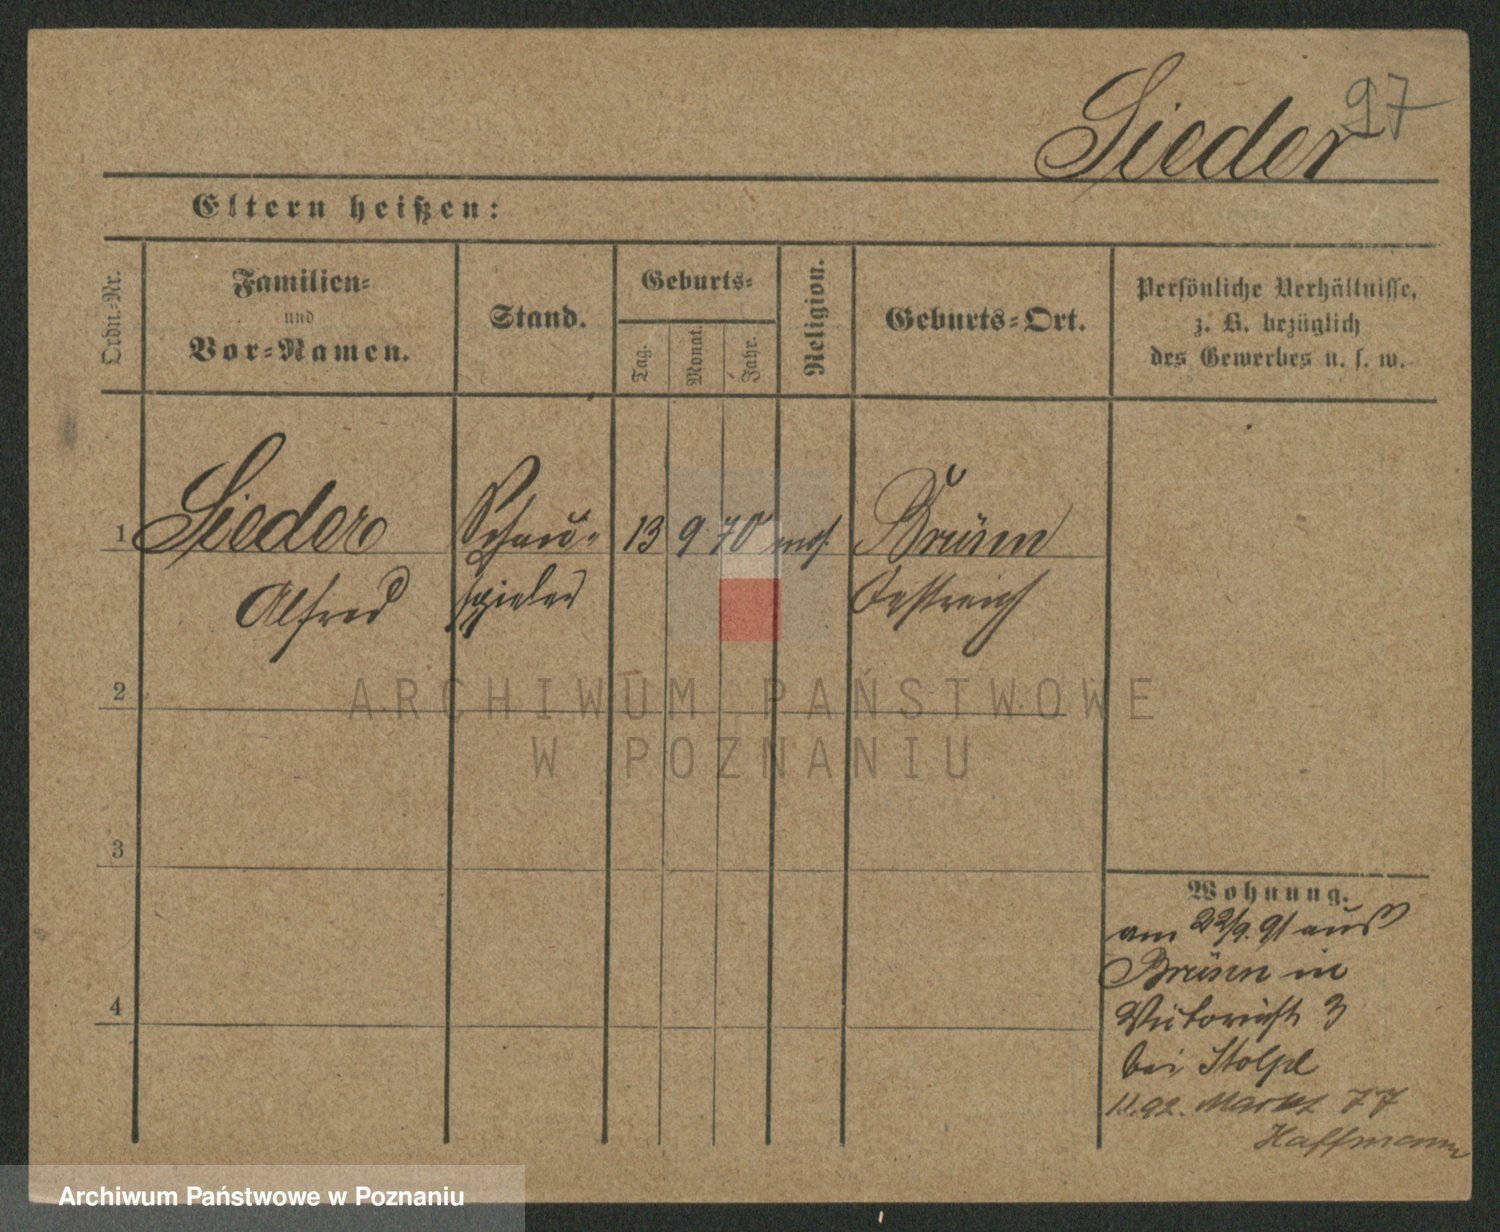 97
Sieder
Eltern heißen:
Ordn.-Nr.
Familien-
und
Vor-Namen.
Stand.
Geburts-
Tag.
Monat.
Jahr.
Religion.
Geburts-Ort.
Persönliche Verhältnisse,
z. B. bezüglich
des Gewerbes u. s. w.
1 Sieder Schau- 13 9 70 mos. Brünn
Alfred spieler Oestreich
2
3
4
Wohnung.
am 22/9. 91 aus
Brünn in
Victoriastr 3
bei Stolpe
1.1.92. Markt 77
Haffmann
ARCHIWUM PAŃSTWOWE
W POZNANIU
Archiwum Państwowe w Poznaniu